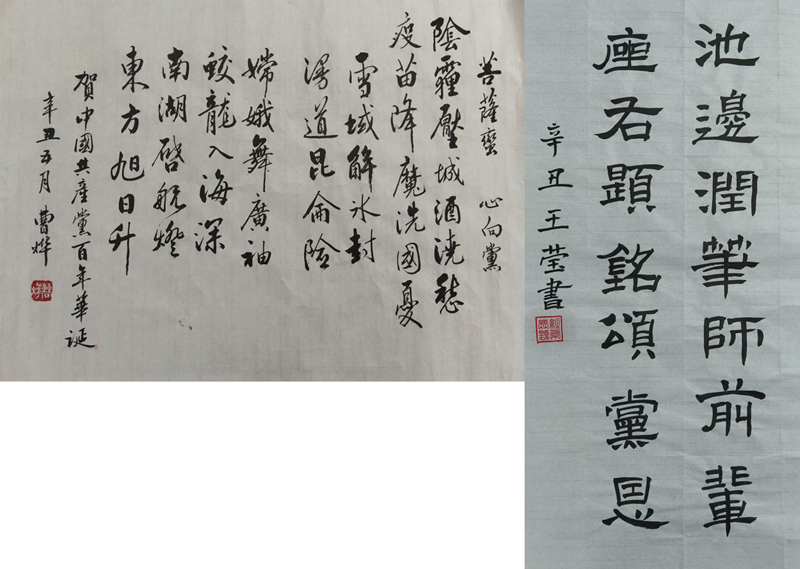 菩薩蠻 心向黨
陰霾壓城酒澆愁
疫苗降魔洗國憂
雪域解冰封
漫道昆侖險
嫦娥舞廣袖
蛟龍入海深
南湖啓航燈
東方旭日升
賀中國共產黨百年華誕
辛丑五月 曹燁
池邊潤筆師前輩
座右題銘頌黨恩
辛丑王莹書